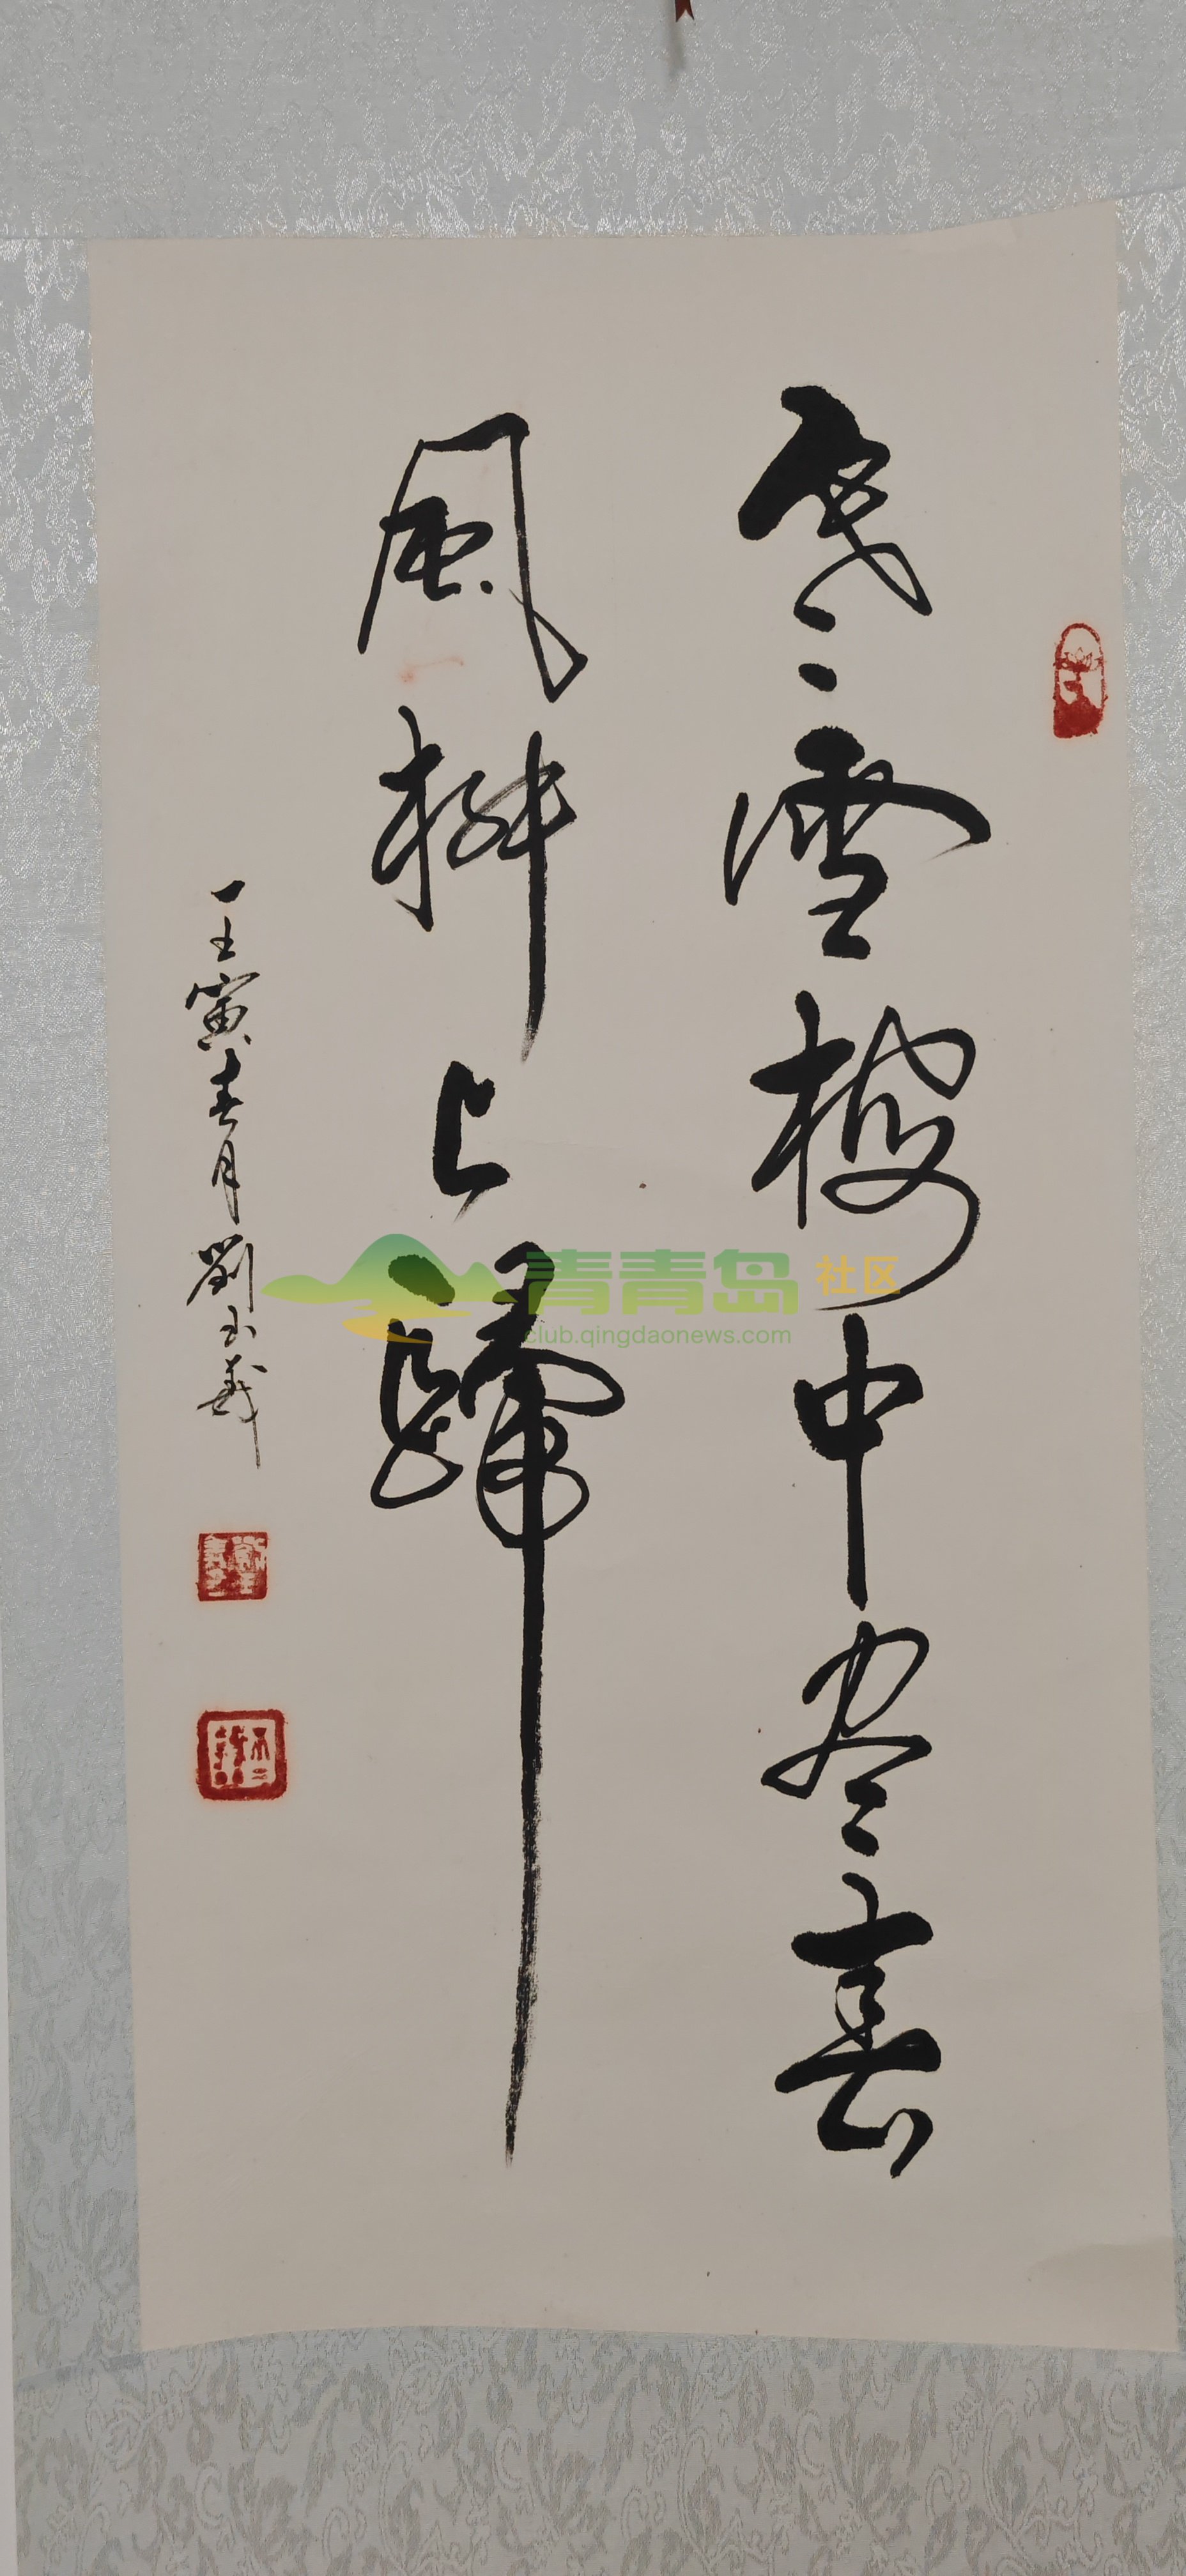 寒雪梅中尽春
風柳上歸
壬寅春月劉玉義
青青岛社区
club.qingdaonews.com